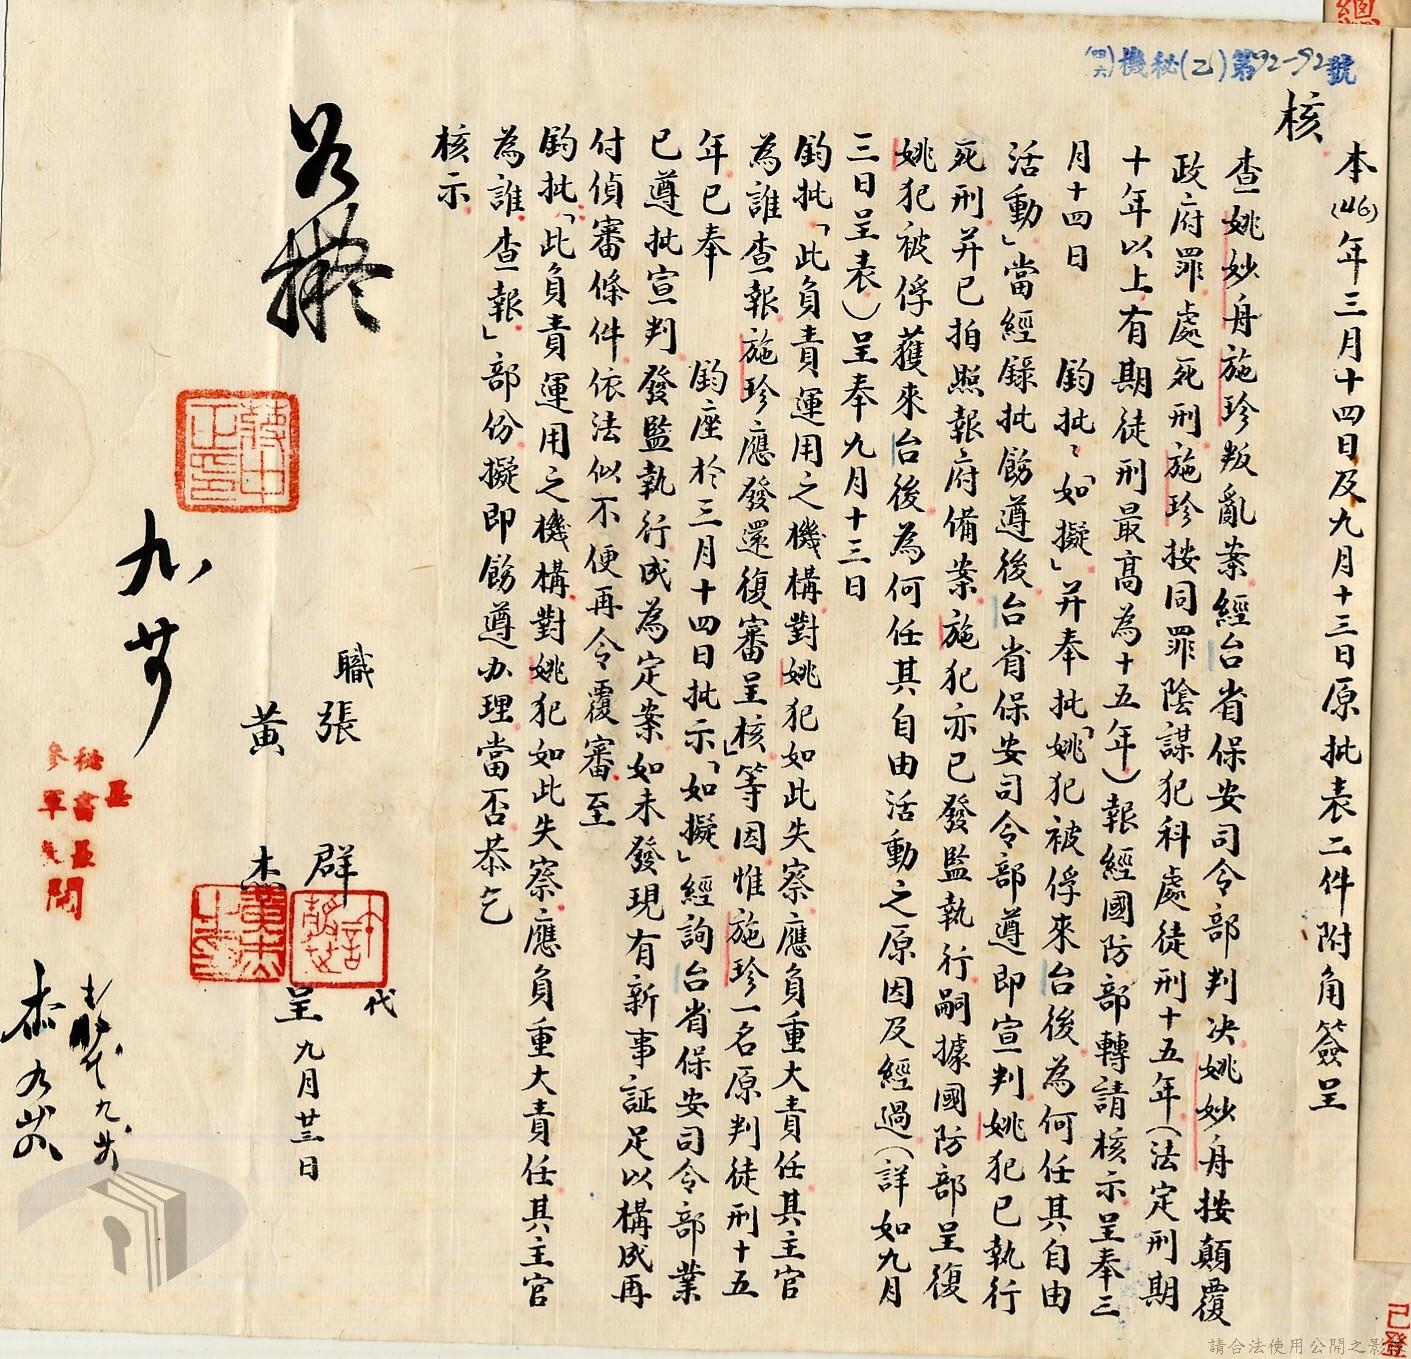 (四六)機秘(乙)第92-92號
核
本(46)年三月十四日及九月十三日原批表二件附角簽呈
查姚妙舟施珍叛亂案經台省保安司令部判決姚妙舟按顛覆
政府罪處死刑施珍按同罪陰謀犯科處徒刑十五年(法定刑期
十年以上有期徒刑最高為十五年)報經國防部轉請核示呈奉三
月十四日 鈞批:「如擬」并奉批「姚犯被俘來台後為何任其自由
活動」當經錄批飭遵後台省保安司令部遵即宣判姚犯已執行
死刑并已拍照報府備案施犯亦已發監執行嗣據國防部呈復
姚犯被俘獲來台後為何任其自由活動之原因及經過(詳如九月
三日呈表)呈奉九月十三日
鈞批「此負責運用之機構對姚犯如此失察應負重大責任其主官
為誰查報施珍應發還復審呈核」等因惟施珍一名原判徒刑十五
年已奉 鈞座於三月十四日批示「如擬」經詢台省保安司令部業
已遵批宣判發監執行成為定案如未發現有新事証足以構成再
付偵審條件依法似不便再令覆審至
鈞批「此負責運用之機構對姚犯如此失察應負重大責任其主官
為誰查報」部份擬即飭遵办理當否恭乞
核示
職張 群 代
黃 杰 呈 九月廿三日
如擬
蔣中正印
請合法使用公開之影像